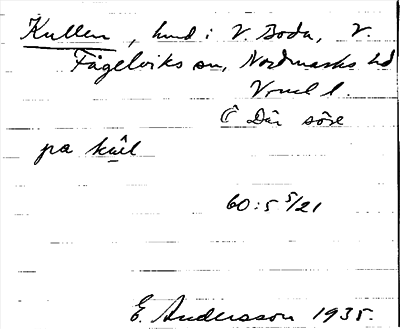 Kullen, hmd i V. Boda, V.
Fågelviks sn, Nordmarks hd
Vrml l.
Ô Där söre
pa kûel
60:5 5/21
E. Andersson 1935.